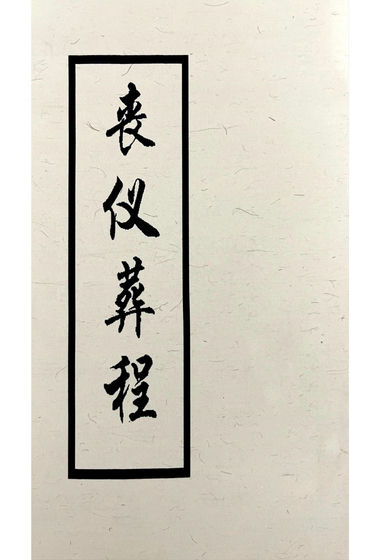 丧仪葬程